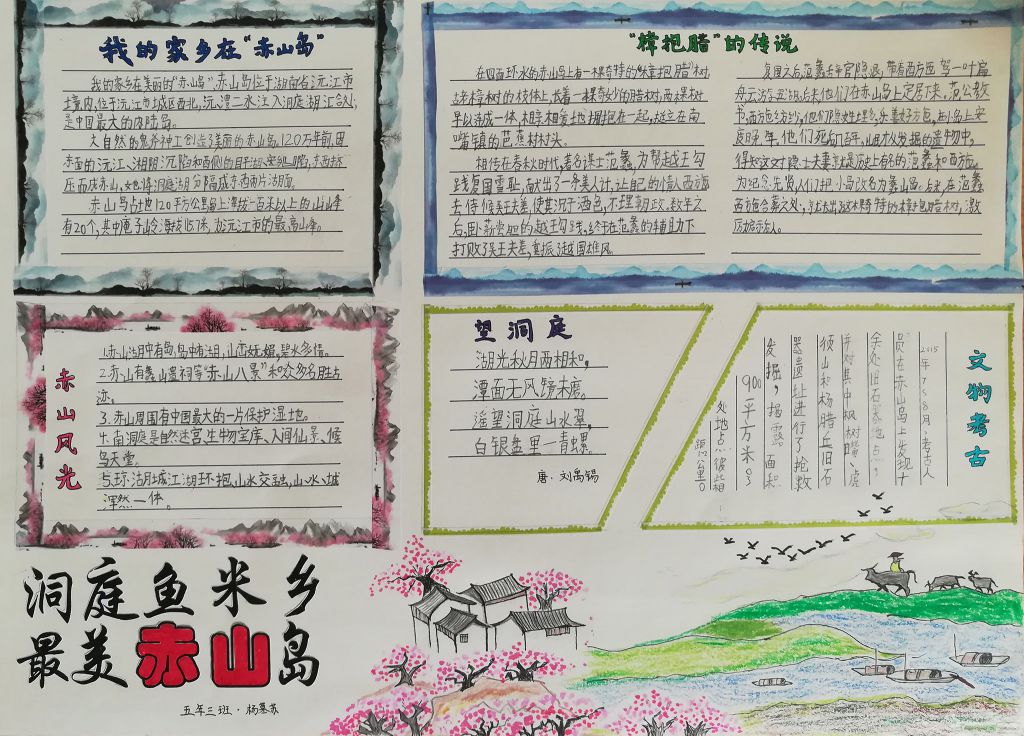 我的家乡在“赤山岛”
我的家乡在美丽的“赤山岛”,赤山岛位于湖南省沅江市
境内,位于沅江市城区西北,沅、澧二水注入洞庭湖汇合处,
是中国最大的内陆岛。
大自然的鬼斧神工创造了美丽的赤山岛,120万年前,因
东面的沅江、湖阴沉陷和西侧的目平湖
压而成赤山,女也将洞庭湖分隔成东西两片湖面。
赤山岛占地120平方公里,岛上海拔一百米以上的山峰
有20个,其中鹰子岭海拔115米,为沅江市的最高山峰。
“樟抱腊”的传说
在四面环水的赤山岛上有一棵奇特的“樟抱腊”树,
这老樟树的枝体上,长着一棵奇妙的腊树,两棵树
早以连成一体,相亲相爱地拥抱在一起,挺立在南
嘴镇的芭蕉村村头。
相传在春秋时代,著名谋士范蠡,为帮越王勾
践复国雪耻,献出了一条美人计,让自己的情人西施
去侍候吴王夫差,使其沉于酒色,不理朝政。数年之
后,卧薪尝胆的越王勾践,终于在范蠡的辅助力下
打败了吴王夫差,重振了越国雄风。
复国之后,范蠡丢官隐退,带着西方施驾一叶扁
舟云游五湖。后来,他们在赤山岛上定居下来。范公教
书,西方施纺纱,他们隐姓埋名,乐善好施,在小岛上安
度晚年。他们死后百年,
得知这对隐士夫妻就是历史上有名的范蠡和西方施。
为纪念先贤,人们把小岛改名为蠡山岛。后来,在范蠡
西施合墓之处,才长出这棵奇特的樟抱腊树,激
励启示后人。
赤山风光
1.赤山湖中有岛,岛中有湖,山峦妩媚,碧水多情。
2.赤山有蠡山遗祠等“赤山八景”和众多名胜古
迹。
3.赤山周围有中国最大的一片保护湿地。
4.南洞庭是自然迷宫、生物宝库、人间仙景、候
鸟天堂。
5.环湖城江湖环抱,山水交融,山、水、城
浑然一体。
望洞庭
湖光秋月两相和,
潭面无风镜未磨。
遥望洞庭山水翠,
白银盘里一青螺。
唐·刘禹锡
文物考古
2015年7~8月,考古人
员在赤山岛上发现十
余处旧石器地点,
并对其中枫树嘴、虎
须山和杨腊丘旧石
器遗址进行了抢救
发掘,揭露面积
900平方米。
处地点彼此相
距12公里。
洞庭鱼米乡
最美赤山岛
五年三班·杨慕苏